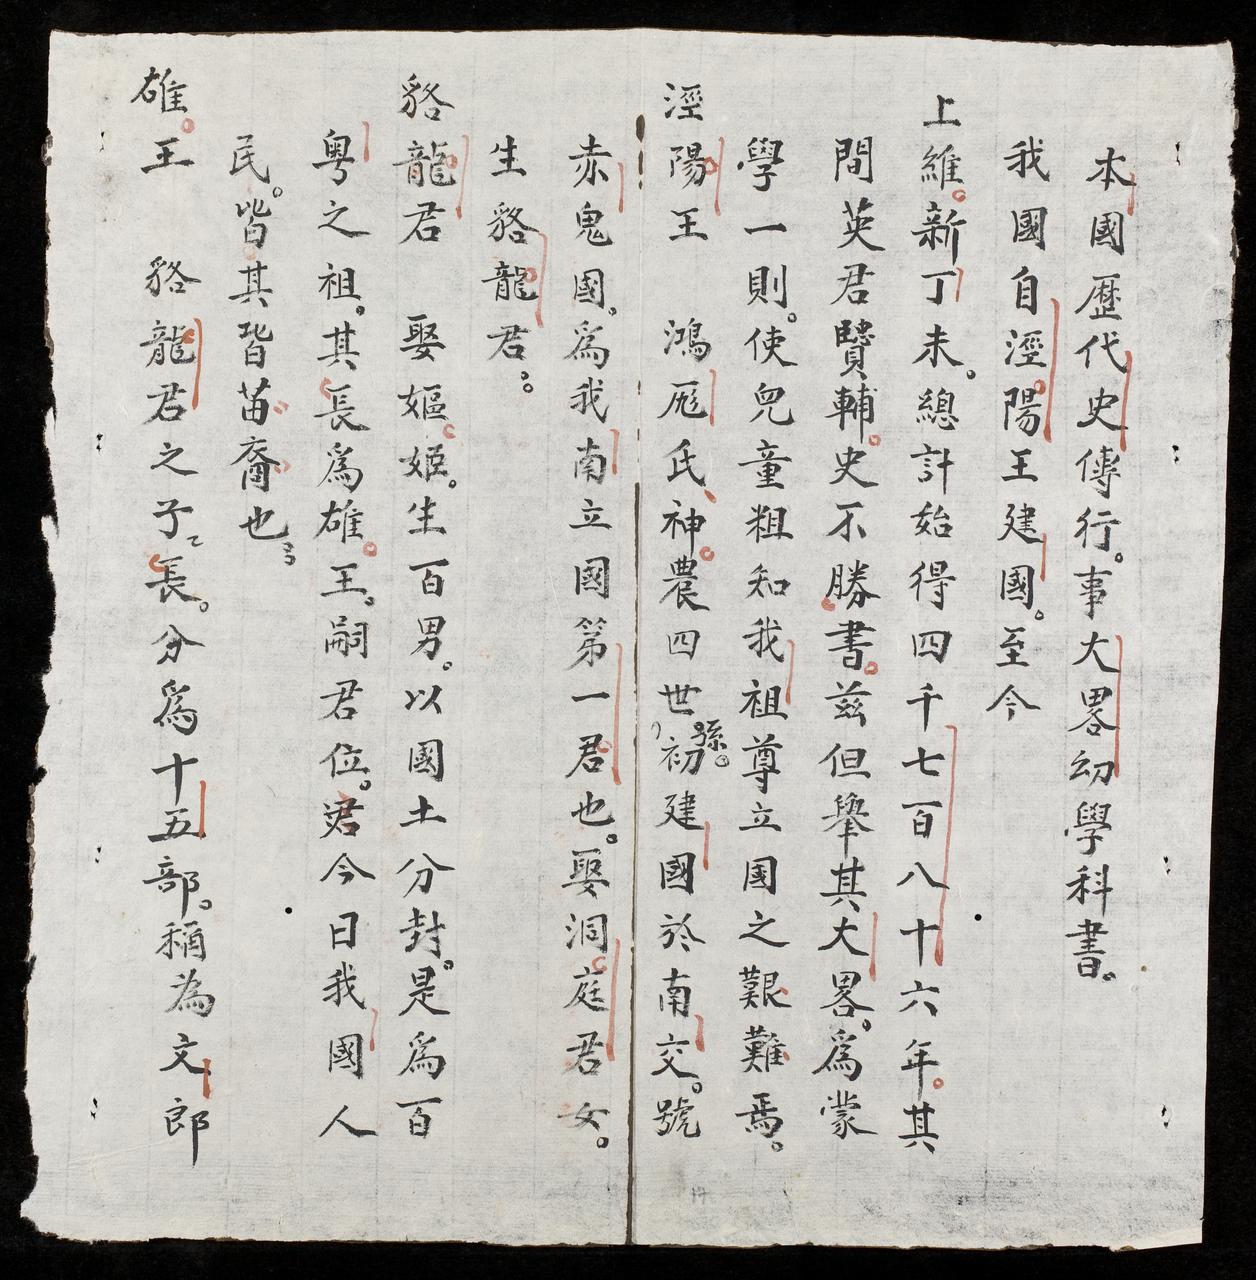 本國歷代史傳行。事大畧幼學科書。
我國自涇陽王建國。至今
上維新丁未。總計始得四千七百八十六年其
間英君賢輔史不勝書茲但舉其大畧。爲蒙
學一則。使兒童粗知我祖尊立國之艱難焉。
涇陽王 鴻厖氏神農四世孫。初建國於南交。號
赤鬼國。爲我南立國第一君也。娶洞庭君女。
生貉龍君。
貉龍君 娶嫗姬。生百男。以國土分封。是爲百
粤之祖。其長爲雄王。嗣君位。君今日我國人
民。皆其苗裔也
雄王 貉龍君之子長。分爲十五部。稱為文郎